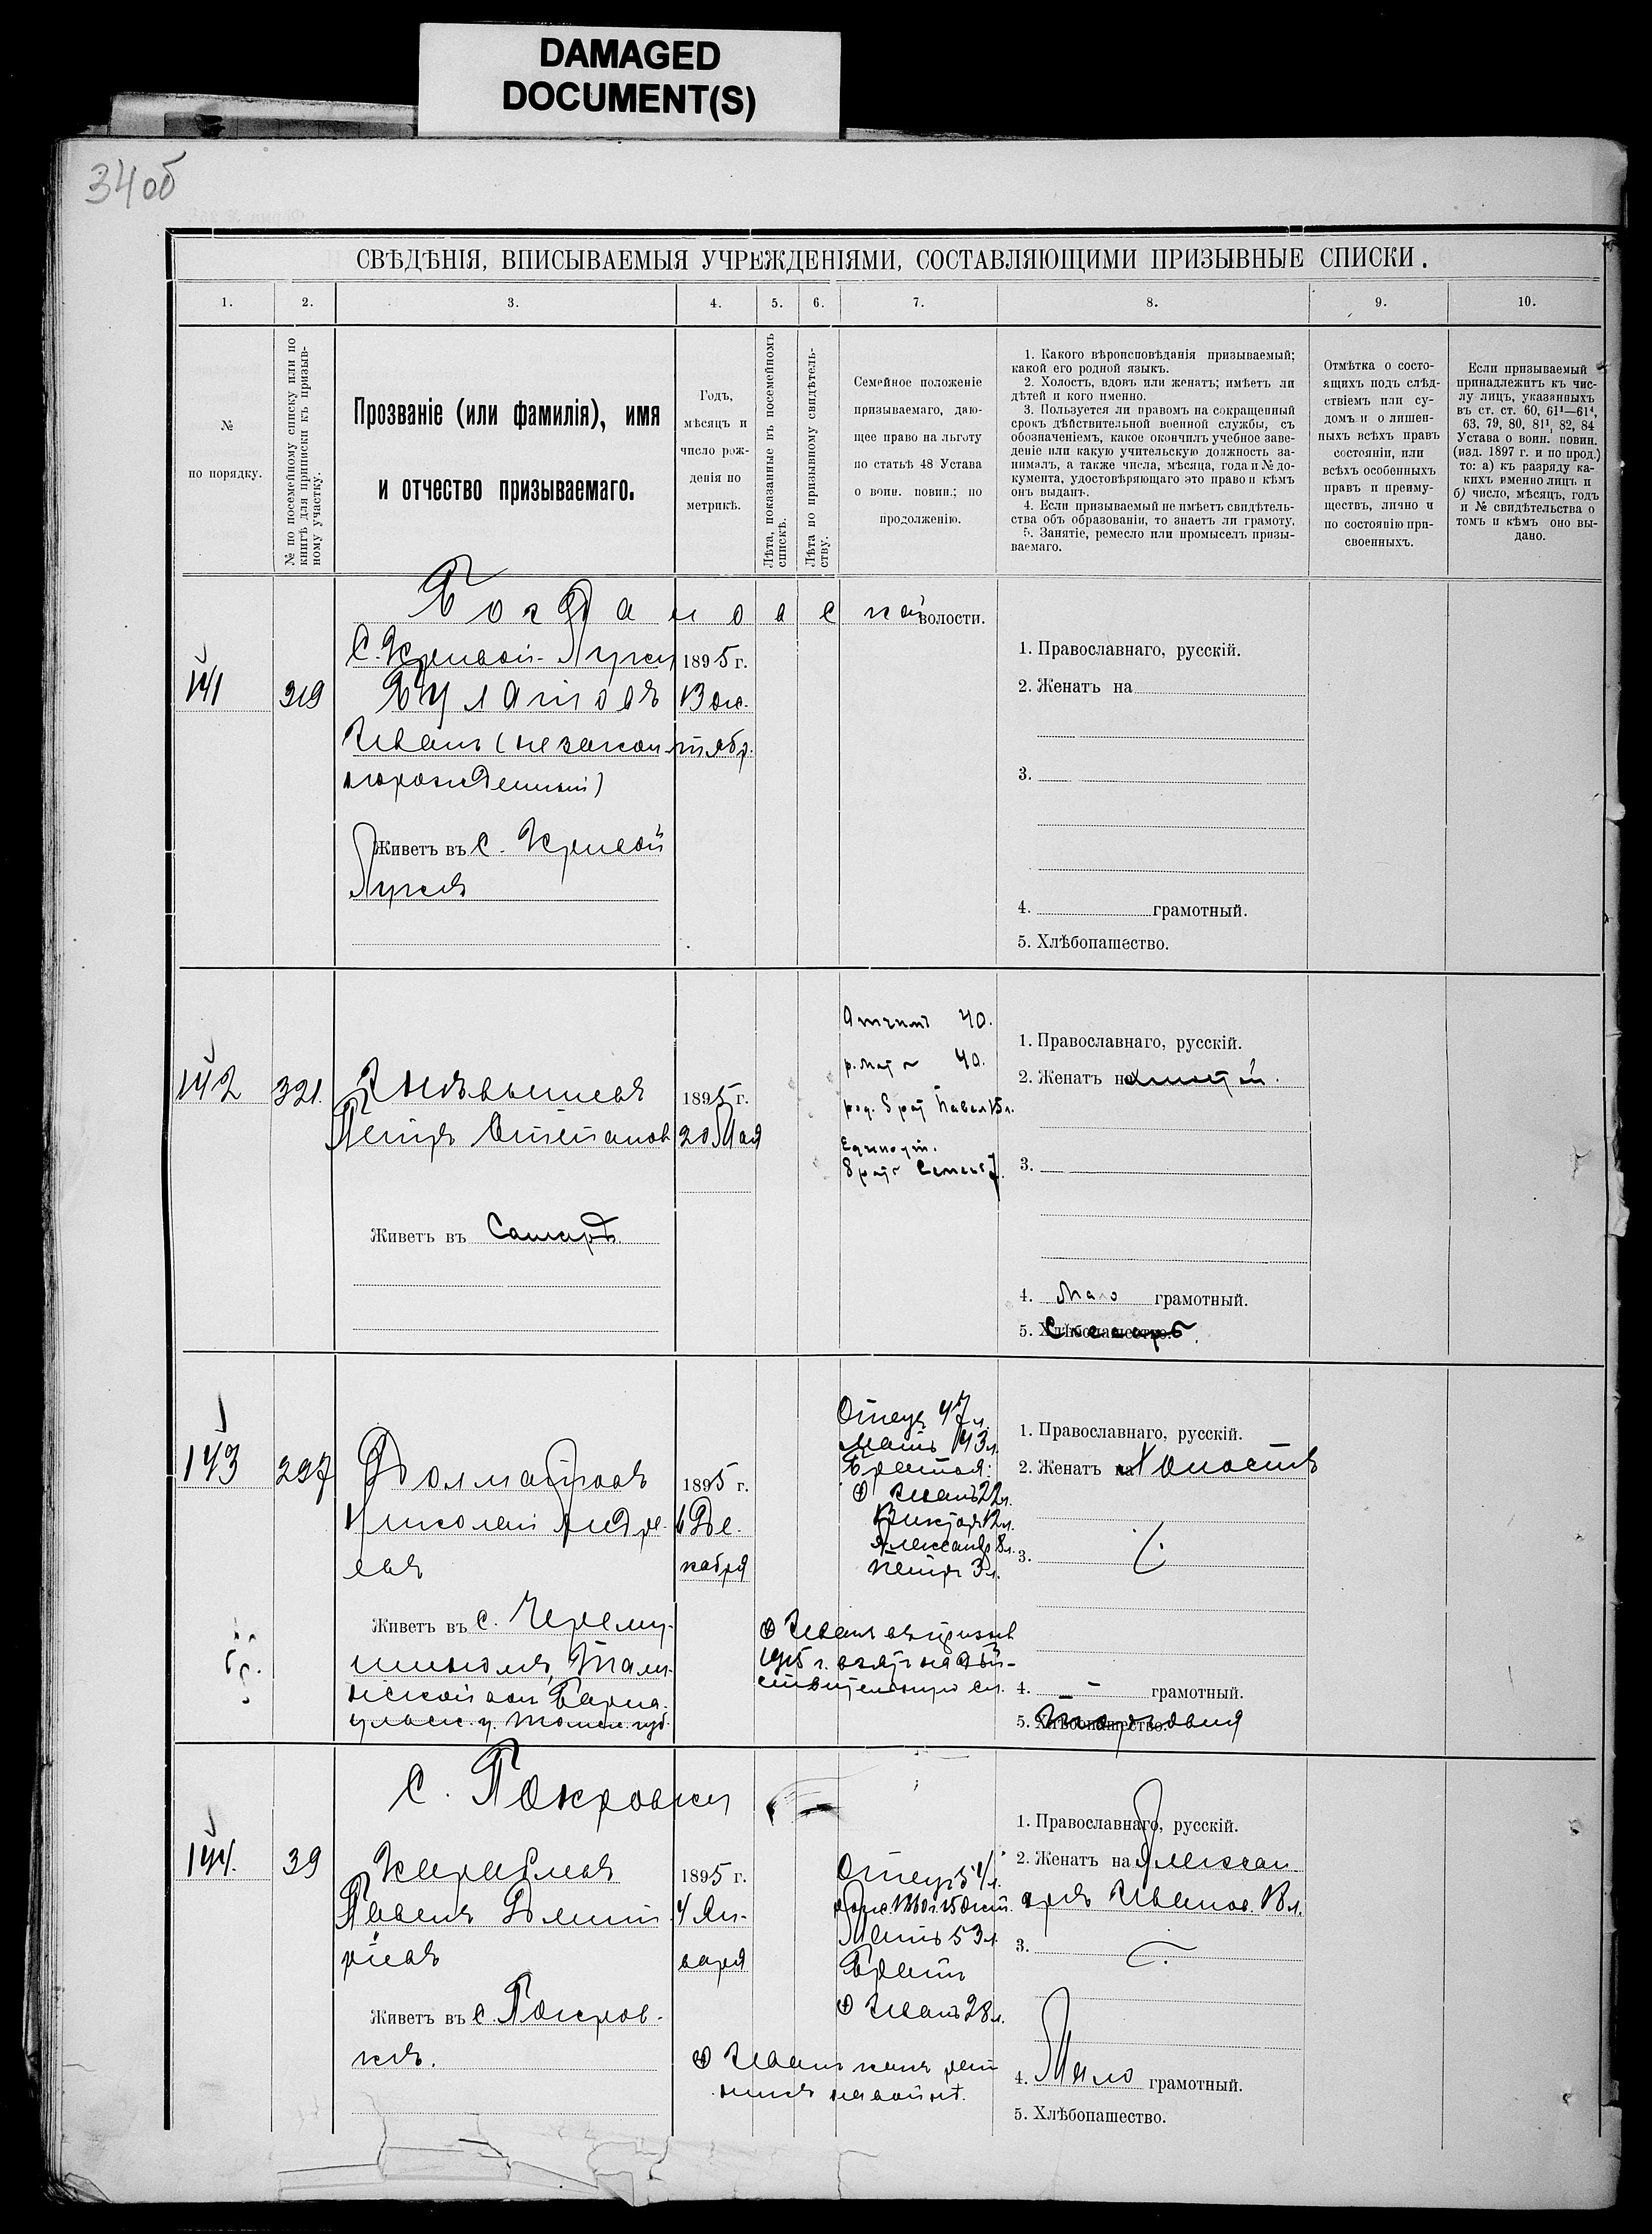 DAMAGED
DOCUMENT(S)
34 об
СВѢДѢНІЯ, ВПИСЫВАЕМЫЯ УЧРЕЖДЕНІЯМИ, СОСТАВЛЯЮЩИМИ ПРИЗЫВНЫЕ СПИСКИ.
1. 2. 3. 4. 5. 6. 7. 8. 9. 10.
№
по порядку.
№ по посемейному списку или по
книгѣ для приписки къ призыв-
ному участку.
Прозваніе (или фамилія), имя
и отчество призываемаго.
Годъ,
мѣсяцъ и
число рож-
денія по
метрикѣ.
Лѣта, показанные въ посемейномъ
спискѣ.
Лѣта по призывному свидѣтель-
ству.
Семейное положеніе
призываемаго, даю-
щее право на льготу
по статьѣ 48 Устава
о воин. повин.; по
продолженію.
1. Какого вѣроисповѣданія призываемый;
какой его родной языкъ.
2. Холостъ, вдовъ или женатъ; имѣетъ ли
дѣтей и кого именно.
3. Пользуется ли правомъ на сокращенный
срокъ дѣйствительной военной службы, съ
обозначеніемъ, какое окончилъ учебное заве-
деніе или какую учительскую должность за-
нималъ, а также числа, мѣсяца, года и № до-
кумента, удостовѣряющаго это право и кѣмъ
онъ выданъ.
4. Если призываемый не имѣетъ свидѣтель-
ства объ образованіи, то знаетъ ли грамоту.
5. Занятіе, ремесло или промыселъ призы-
ваемаго.
Отмѣтка о состо-
ящихъ подъ слѣд-
ствіемъ или су-
домъ и о лишен-
ныхъ всѣхъ правъ
состоянія, или
всѣхъ особенныхъ
правъ и преиму-
ществъ, лично и
по состоянію при-
своенныхъ.
Если призываемый
принадлежитъ къ чис-
лу лицъ, указанныхъ
въ ст. ст. 60, 61¹—61⁴,
63, 79, 80, 81¹, 82, 84
Устава о воин. повин.
(изд. 1897 г. и по прод.)
то: а) къ разряду ка-
кихъ именно лицъ и
б) число, мѣсяцъ, годъ
и № свидѣтельства о
томъ и кѣмъ оно вы-
дано.
Богдановской волости.
С. Кривой-Луки
141 319 Булатовъ
Иванъ (незакон-
норожденный)
Живетъ въ с. Кривой
Лукѣ
1895 г.
13 ок-
тябр.
1. Православнаго, русскій.
2. Женатъ на
3.
4. грамотный.
5. Хлѣбопашество.
142 321.
Петръ Степанов
Живетъ въ Самарѣ.
1895 г.
20 Мая
Отчимъ 40.
р. мать 40.
род. брат Павелъ 15 л.
Единоут.
братъ Семенъ 7
1. Православнаго, русскій.
2. Женатъ на холостой.
3.
4. Мало грамотный.
5. Хлѣбопашество. Слесарь.
143 227 Долматовъ
Николай Андре-
евъ
Живетъ въ с. Черему-
шкиномъ, Таль-
менской вол. Барна-
ульск. у. Томск. губ.
1895 г.
6 Де-
кабря
Отецъ 47 л.
Мать 43 л.
Братья:
⊕ Иванъ 22 л.
Викторъ 12 л.
Александр 8 л.
Петръ 3 л.
⊕ Иванъ въ призыв
1915 г. взятъ на дѣй-
ствительную сл.
1. Православнаго, русскій.
2. Женатъ на Холостъ
3.
4. — - грамотный.
5. Хлѣбопашество. Торговля
С. Покровки
144. 39 Карабаевъ
Павелъ Дмит-
ріевъ
Живетъ въ с. Покров-
кѣ.
1895 г.
4 Ян-
варя
Отецъ 54 л.
Мать 53 л.
Братъ
⊕ Иванъ 28 л.
⊕ Иванъ какъ рат
никъ на войнѣ.
1. Православнаго, русскій.
2. Женатъ на Алексан-
дрѣ Иванов. 18 л.
3.
4. Мало грамотный.
5. Хлѣбопашество.